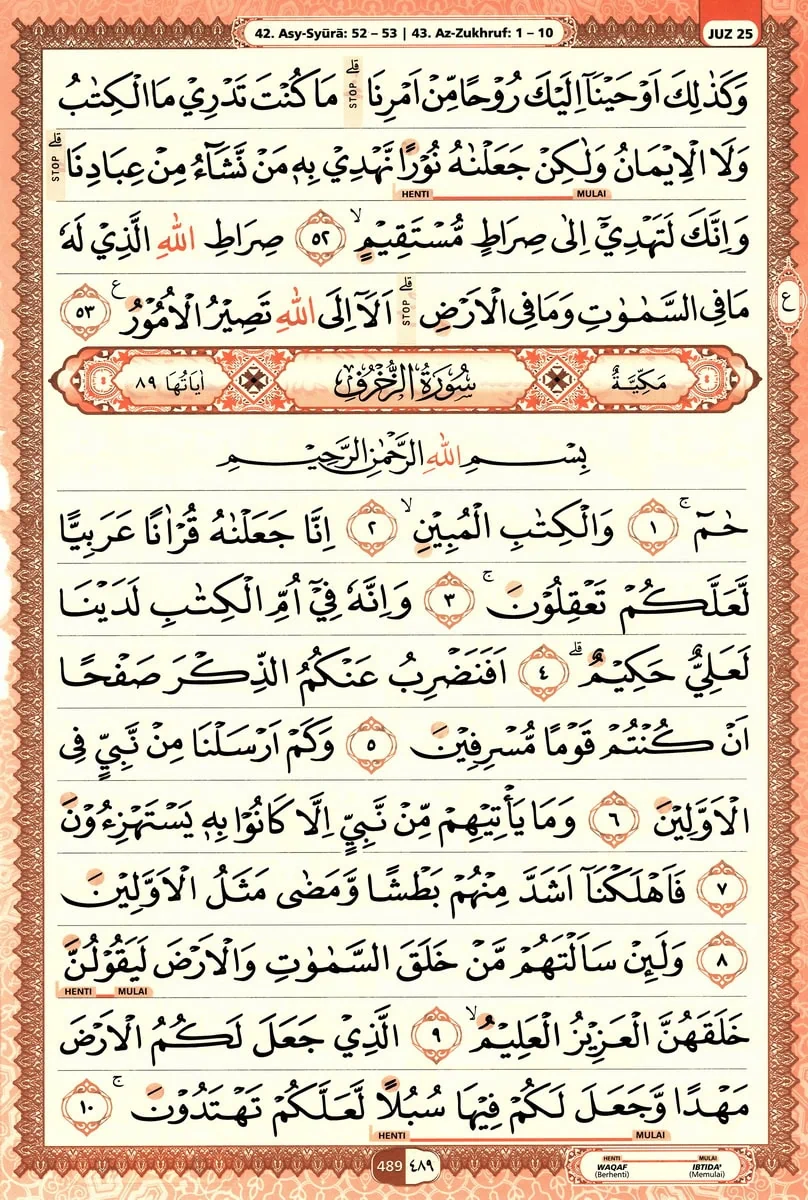 42. Asy-Syūrā: 52 – 53 | 43. Az-Zukhruf: 1 – 10
JUZ 25
وَكَذٰلِكَ اَوْحَيْنَآ اِلَيْكَ رُوْحًا مِّنْ اَمْرِنَا ۗ STOP مَا كُنْتَ تَدْرِيْ مَا الْكِتٰبُ
وَلَا الْاِيْمَانُ وَلٰكِنْ جَعَلْنٰهُ نُوْرًا نَّهْدِيْ بِهٖ مَنْ نَّشَاۤءُ مِنْ عِبَادِنَا ۗ STOP
HENTI MULAI
وَاِنَّكَ لَتَهْدِيْٓ اِلٰى صِرَاطٍ مُّسْتَقِيْمٍۙ ٥٢ صِرَاطِ اللّٰهِ الَّذِيْ لَهٗ
مَا فِى السَّمٰوٰتِ وَمَا فِى الْاَرْضِ ۗ STOP اَلَآ اِلَى اللّٰهِ تَصِيْرُ الْاُمُوْرُ ࣖ ٥٣
ع
مَكِّيَّةٌ سُوْرَةُ الزُّخْرُفِ اٰيَاتُهَا ٨٩
بِسْمِ اللّٰهِ الرَّحْمٰنِ الرَّحِيْمِ
حٰمۤ ۚ ١ وَالْكِتٰبِ الْمُبِيْنِ ۙ ٢ اِنَّا جَعَلْنٰهُ قُرْاٰنًا عَرَبِيًّا
لَّعَلَّكُمْ تَعْقِلُوْنَ ۚ ٣ وَاِنَّهٗ فِيْٓ اُمِّ الْكِتٰبِ لَدَيْنَا
لَعَلِيٌّ حَكِيْمٌ ۗ ٤ اَفَنَضْرِبُ عَنْكُمُ الذِّكْرَ صَفْحًا
اَنْ كُنْتُمْ قَوْمًا مُّسْرِفِيْنَ ٥ وَكَمْ اَرْسَلْنَا مِنْ نَّبِيٍّ فِى
الْاَوَّلِيْنَ ٦ وَمَا يَأْتِيْهِمْ مِّنْ نَّبِيٍّ اِلَّا كَانُوْا بِهٖ يَسْتَهْزِءُوْنَ
٧ فَاَهْلَكْنَآ اَشَدَّ مِنْهُمْ بَطْشًا وَّمَضٰى مَثَلُ الْاَوَّلِيْنَ
٨ وَلَىِٕنْ سَاَلْتَهُمْ مَّنْ خَلَقَ السَّمٰوٰتِ وَالْاَرْضَ لَيَقُوْلُنَّ
HENTI MULAI
خَلَقَهُنَّ الْعَزِيْزُ الْعَلِيْمُ ۙ ٩ الَّذِيْ جَعَلَ لَكُمُ الْاَرْضَ
مَهْدًا وَّجَعَلَ لَكُمْ فِيْهَا سُبُلًا لَّعَلَّكُمْ تَهْتَدُوْنَ ۚ ١٠
HENTI MULAI
489 ٤٨٩
HENTI MULAI
WAQAF IBTIDA'
(Berhenti) (Memulai)